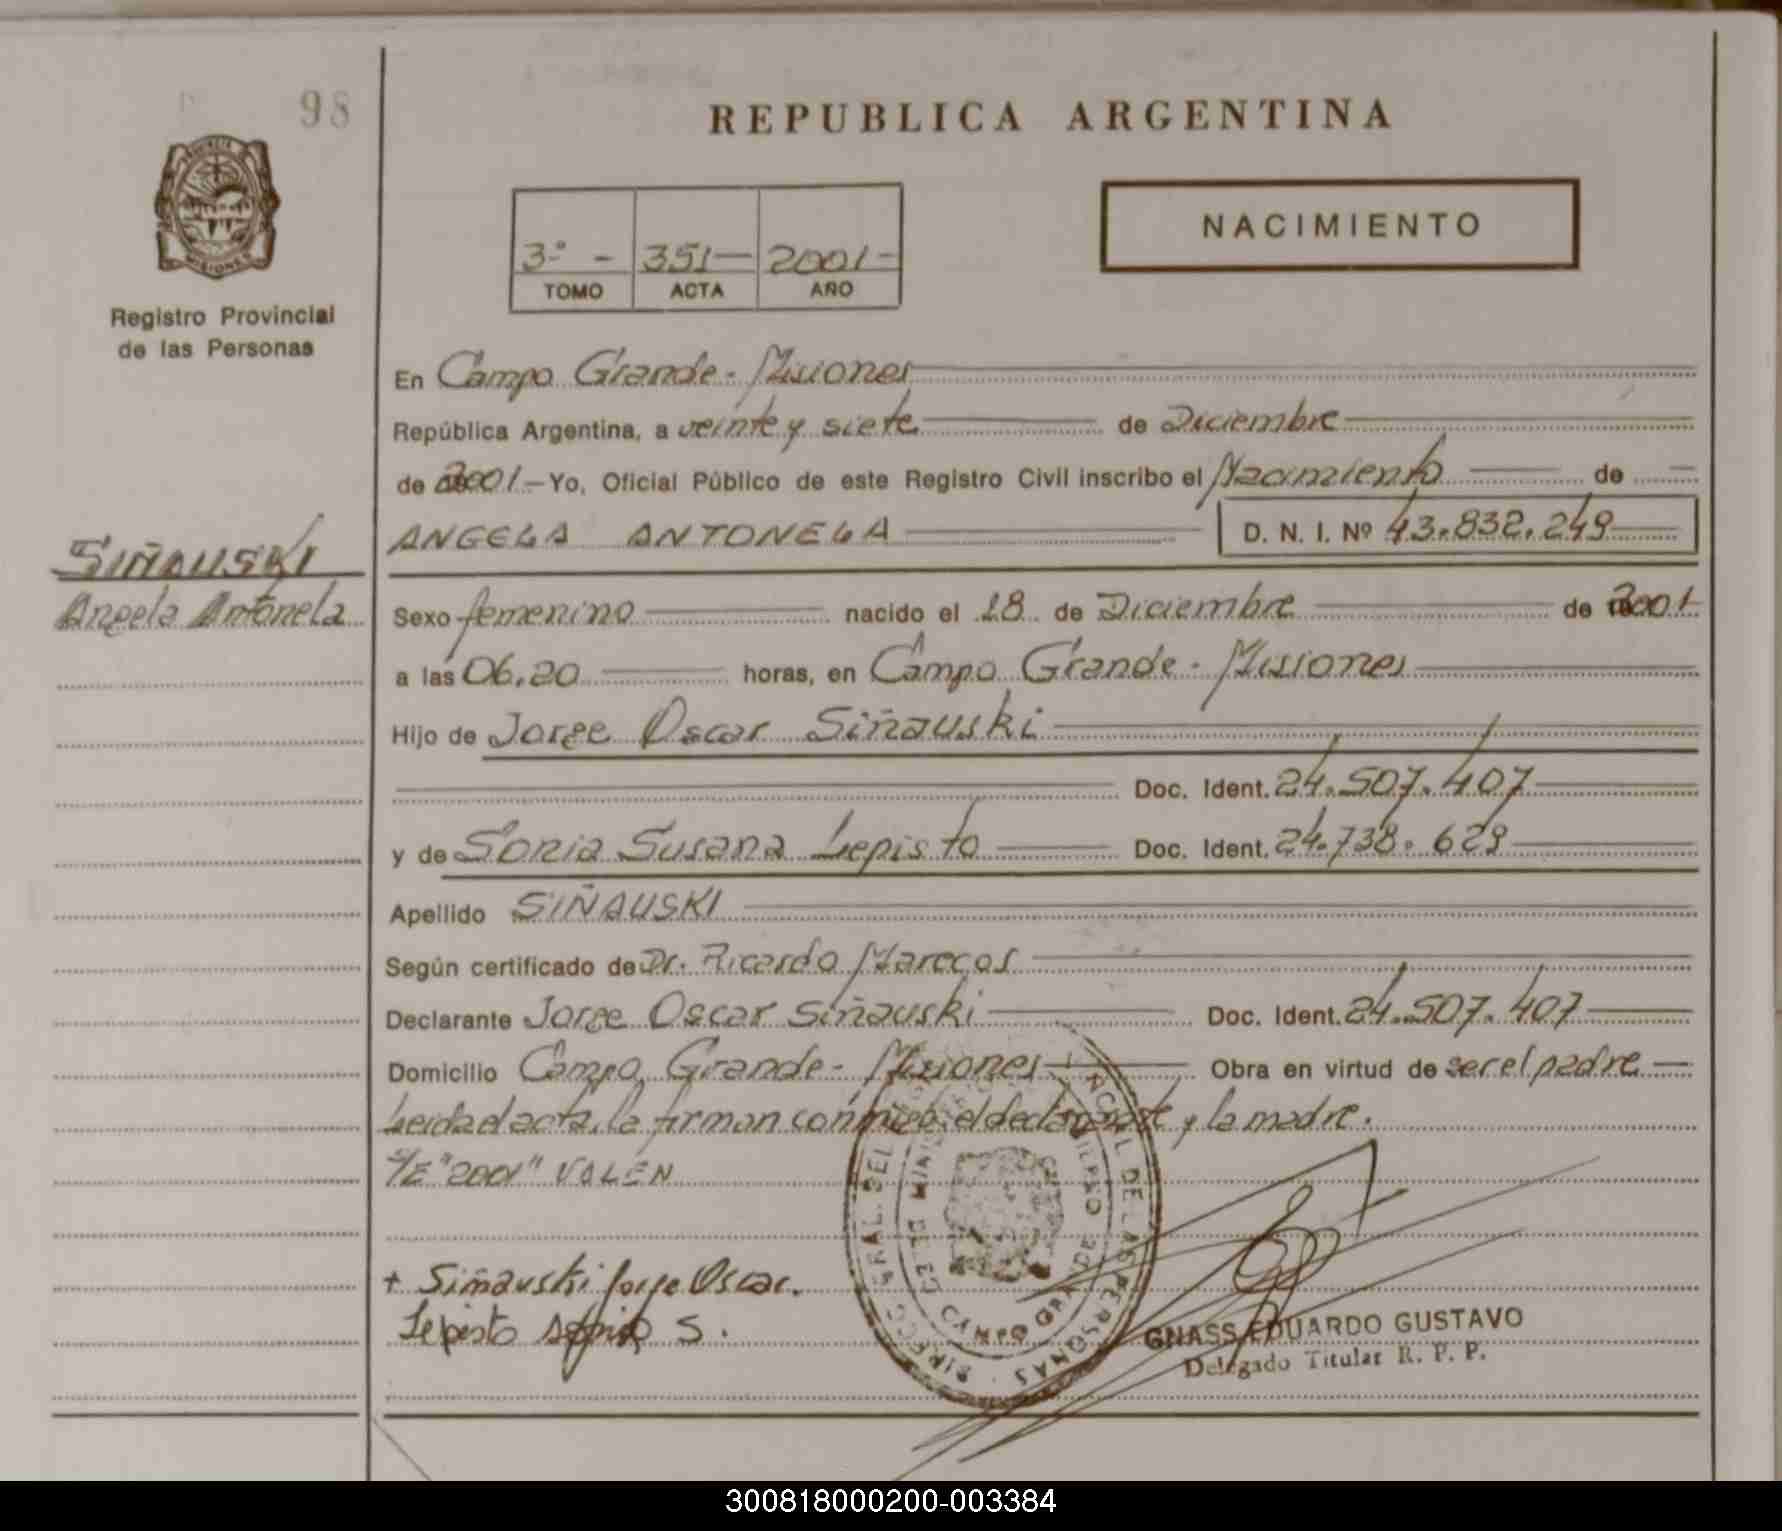 98
REPUBLICA ARGENTINA
PROVINCIA
MISIONES
Registro Provincial
de las Personas
3º - 351 - 2001 -
TOMO ACTA AÑO
NACIMIENTO
En Campo Grande - Misiones
República Argentina, a veinte y siete de Diciembre
de 2001 - Yo, Oficial Público de este Registro Civil inscribo el Nacimiento de
ANGELA ANTONELA D. N. I. Nº 43.832.249
SIÑAUSKI
Angela Antonela
Sexo femenino nacido el 18 de Diciembre de 2001
a las 06.20 horas, en Campo Grande - Misiones
Hijo de Jorge Oscar Siñauski
Doc. Ident. 24.507.407
y de Sonia Susana Lepisto Doc. Ident. 24.738.629
Apellido SIÑAUSKI
Según certificado de Dr. Ricardo Marecos
Declarante Jorge Oscar Siñauski Doc. Ident. 24.507.407
Domicilio Campo Grande - Misiones Obra en virtud de ser el padre
Leida el acta, la firman conmigo el declarante y la madre.
S/E "2001" VALEN
+ Siñauski Jorge Oscar.
Lepisto Sonia S.
DE LAS PERSONAS
CAMPO GRANDE
GNASS EDUARDO GUSTAVO
Delegado Titular R. P. P.
300818000200-003384